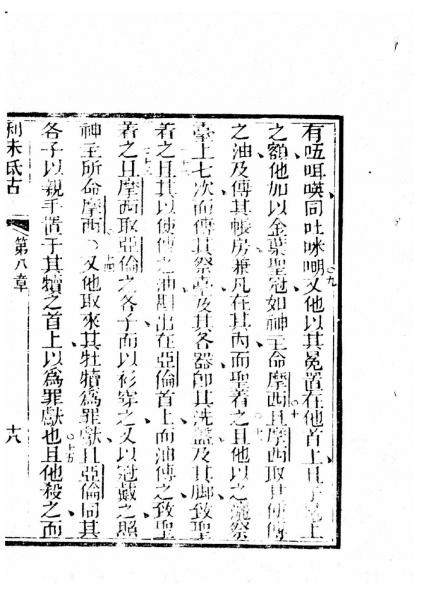 有𠵽咡㖤同吐咪嘲又他以其冕置在他首上且于冕上
之額他加以金葉聖冠如神主命摩西且摩西取其使傅
之油及傅其帳房兼凡在其內而聖着之且他以之灑祭
臺上七次而傅其祭臺及其各器卽其洗盤及其脚致聖
着之且其以使傅之油斟出在亞倫首上而油傅之致聖
着之且摩西取亞倫之各子而以衫穿之又以冠戴之照
神主所命摩西又他取來其牡犢為罪獻且亞倫同其
各子以親手置于其犢之首上以為罪獻也且他殺之而
利未氐古 第八章 十八